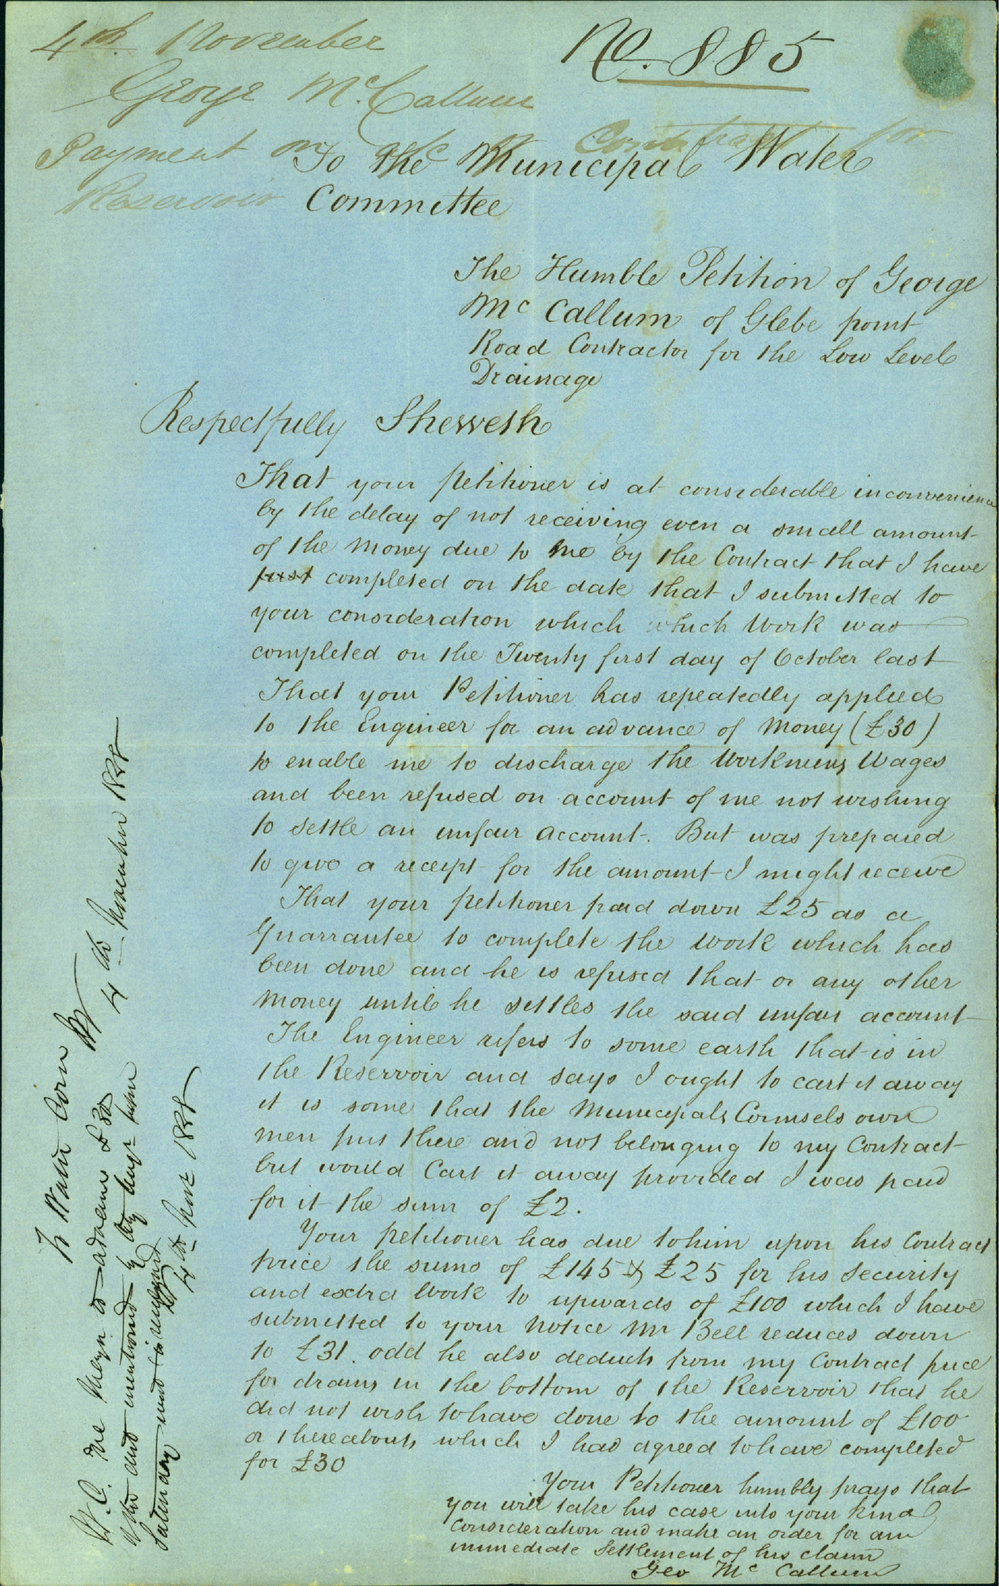 No. 885
4th. November
George McCallum
Payment on Contract for
Reservoir
To the Municipal Water
Committee
The Humble Petition of George
Mc Callum of Glebe point
Road Contractor for the Low Level
Drainage
Respectfully Sheweth
That your petitioner is at considerable inconvenience
by the delay of not receiving even a small amount
of the money due to me by the Contract that I have
just completed on the date that I submitted to
your consideration which which Work was
completed on the Twenty first day of October last
That your Petitioner has repeatedly applied
to the Engineer for an advance of Money (£30)
to enable me to discharge the Workmens Wages
and been refused on account of me not wishing
to settle an unfair account. But was prepared
to give a receipt for the amount I might receive
That your petitioner paid down £25 as a
Guarrantee to complete the work which has
been done and he is refused that or any other
money until he settles the said unfair account
The Engineer refers to some earth that is in
the Reservoir and says I ought to cart it away
it is some that the Municipals Counsels own
men put there and not belonging to my Contract
but would Cart it away provided I was paid
for it the sum of £2.
Your petitioner has due to him upon his Contract
price the sums of £145 & £25 for his Security
and extra Work to upwards of £100 which I have
submitted to your Notice Mr Bell reduces down
to £31. odd he also deducts from my Contract price
for drains in the bottom of the Reservoir that he
did not wish to have done to the amount of £100
or thereabouts which I had agreed to have completed
for £30
Your Petitioner humbly prays that
you will take his case into your kind
Consideration and make an order for an
immediate Settlement of his claim
Geo Mc Callum
4th November 185
W.C. The Mayor to advance £30
4th Nov 185